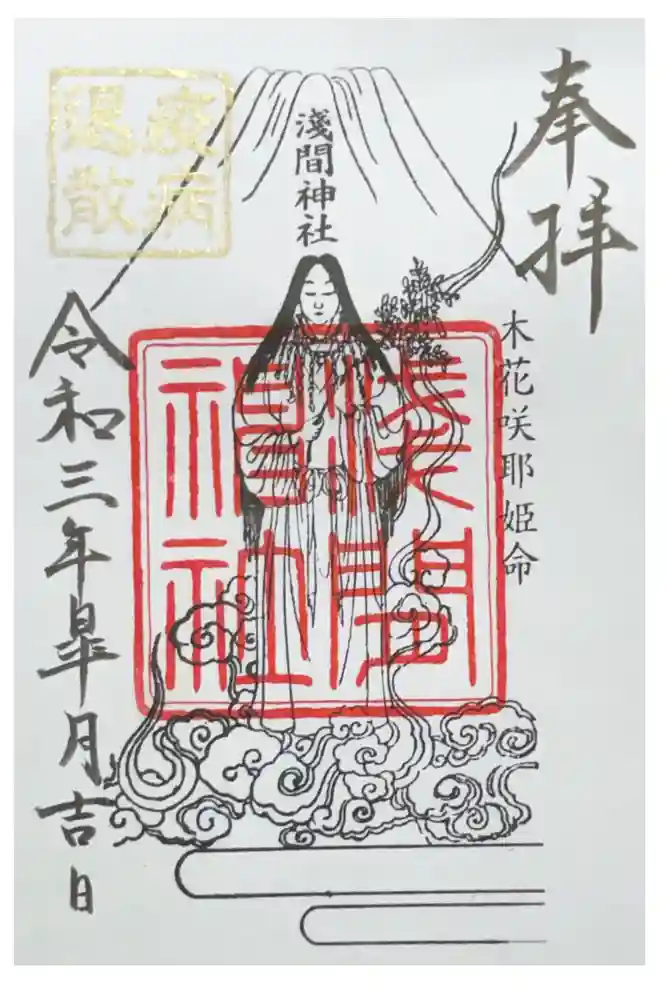 奉拝
木花咲耶姫命
淺間神社
淺間神社
疫病退散
令和三年皐月吉日